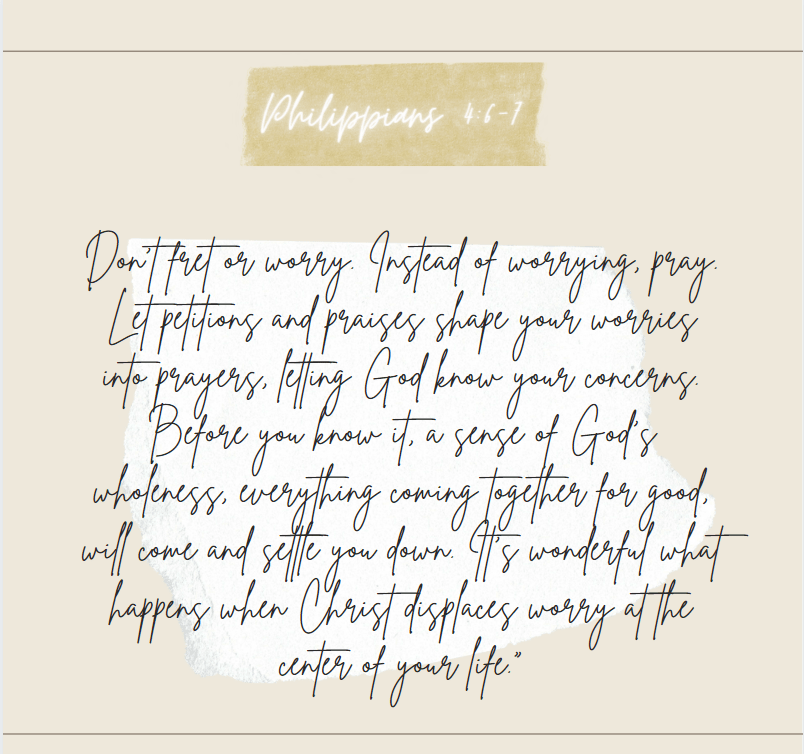 Philippians 4:6-7
Don't fret or worry. Instead of worrying, pray.
Let petitions and praises shape your worries
into prayers, letting God know your concerns.
Before you know it, a sense of God's
wholeness, everything coming together for good,
will come and settle you down. It's wonderful what
happens when Christ displaces worry at the
center of your life."